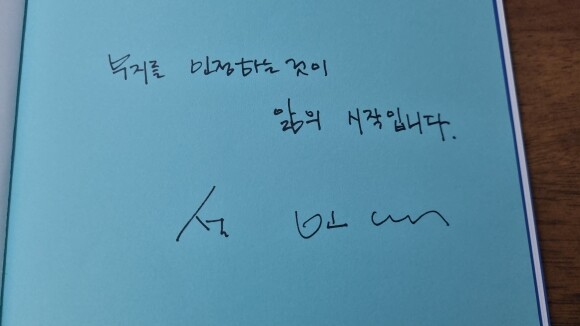 부지를 인정하는 것이
앎의 시작입니다.
설 민